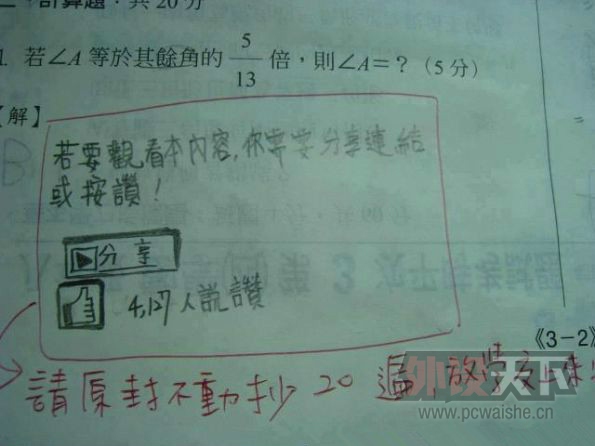 二、計算題：共20分
1. 若∠A 等於其餘角的 5/13 倍，則∠A=？（5分）
【解】
若要觀看本內容，你需要分享連結
或按讚！
分享
4,127人說讚
《3-2》
請原封不動抄20遍 放學交上來
外设天下
www.pcwaishe.cn